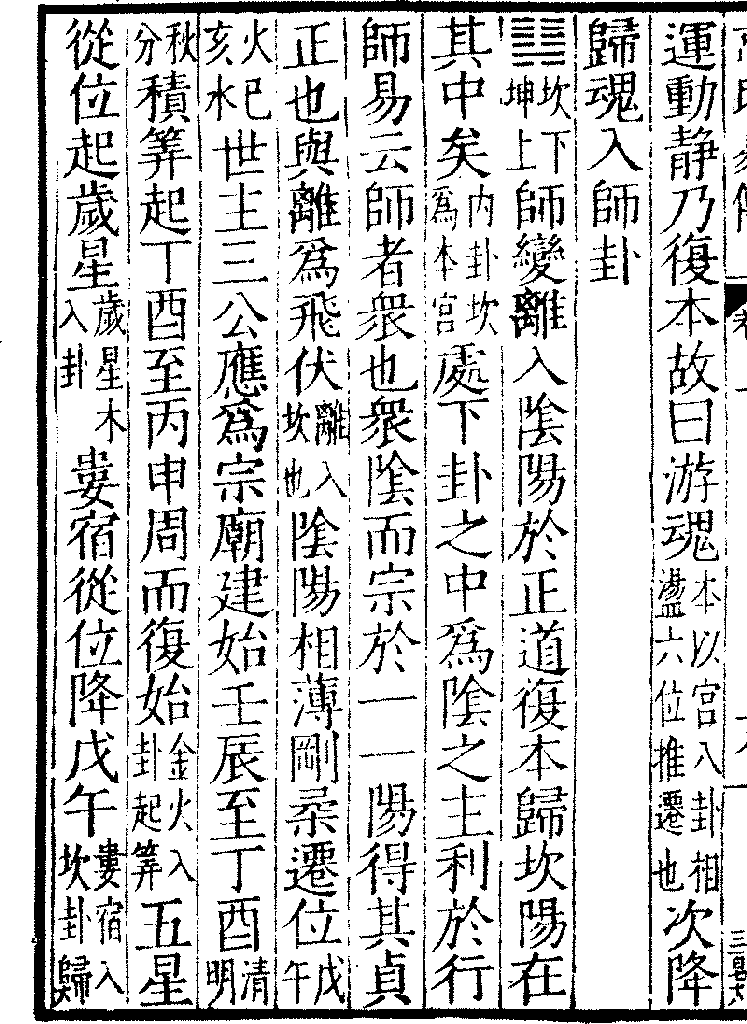 運動静乃復本故曰游魂本以宮八卦相盪六位推遷也次降
歸魂入師卦
䷆坎下坤上師變離入陰陽於正道復本歸坎陽在
其中矣内卦坎爲本宮處下卦之中爲陰之主利於行
師易云師者衆也衆陰而宗於一一陽得其貞
正也與離爲飛伏離入坎也陰陽相薄剛柔遷位戊午
火巳亥水世主三公應爲宗廟建始壬辰至丁酉清明
秋分積筭起丁酉至丙申周而復始金火入卦起筭五星
從位起歲星歲星木入卦婁宿從位降戊午婁宿入坎卦歸